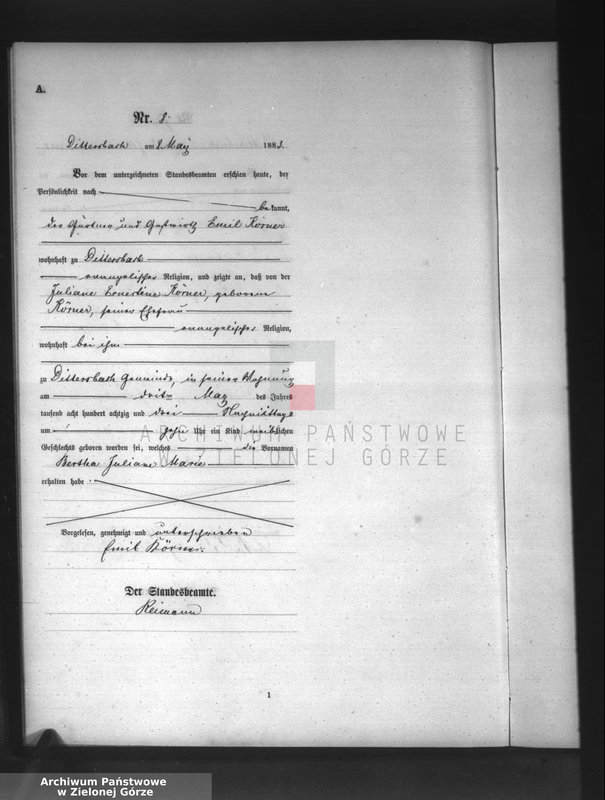 A.
Nr. 8.
Dittersbach am 8 May 1883.
Vor dem unterzeichneten Standesbeamten erschien heute, der
Persönlichkeit nach
bekannt,
der Gärtner und Gastwirth Emil Körner
wohnhaft zu Dittersbach
evangelischer Religion, und zeigte an, daß von der
Juliane Ernestine Körner, geborene
Körner, seiner Ehefrau
evangelischer Religion,
wohnhaft bei ihm
zu Dittersbach Gemeinde, in seiner Wohnung
am dritten May des Jahres
tausend acht hundert achtzig und drei Nachmittags
um zehn Uhr ein Kind weiblichen
Geschlechts geboren worden sei, welches die Vornamen
Bertha Juliane Marie
erhalten habe
Vorgelesen, genehmigt und unterschrieben
Emil Körner.
Der Standesbeamte.
Reimann
1
ARCHIWUM PAŃSTWOWE
W ZIELONEJ GÓRZE
Archiwum Państwowe
w Zielonej Górze